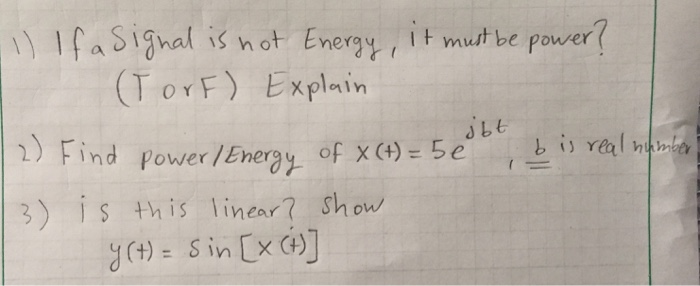 1) If a Signal is not Energy, it must be power?
(T or F) Explain
2) Find power/Energy of x(t) = 5e^jbt, b is real number
3) is this linear? show
y(t) = Sin [x(t)]